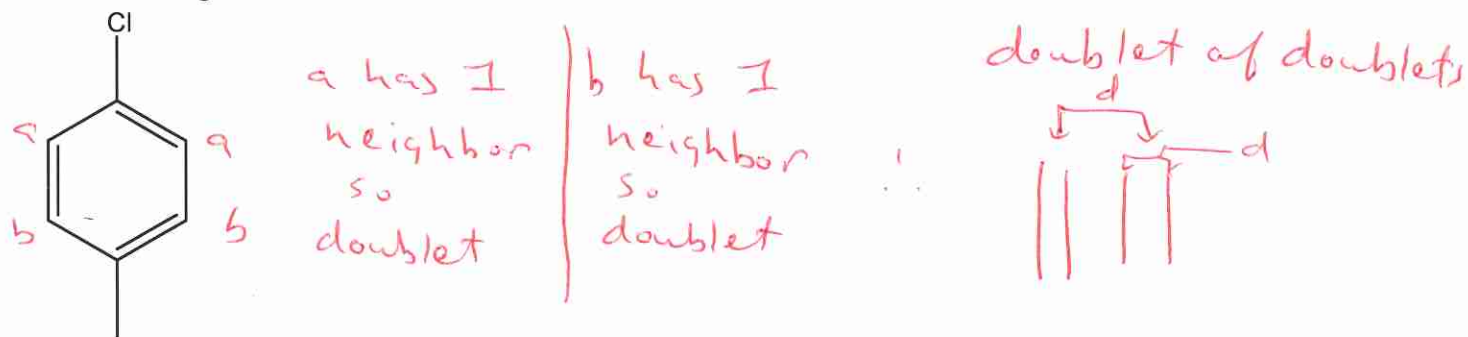 Cl
a
a
b
b
a has 1
neighbor
so
doublet
b has 1
neighbor
so
doublet
∴
doublet of doublets
d
d